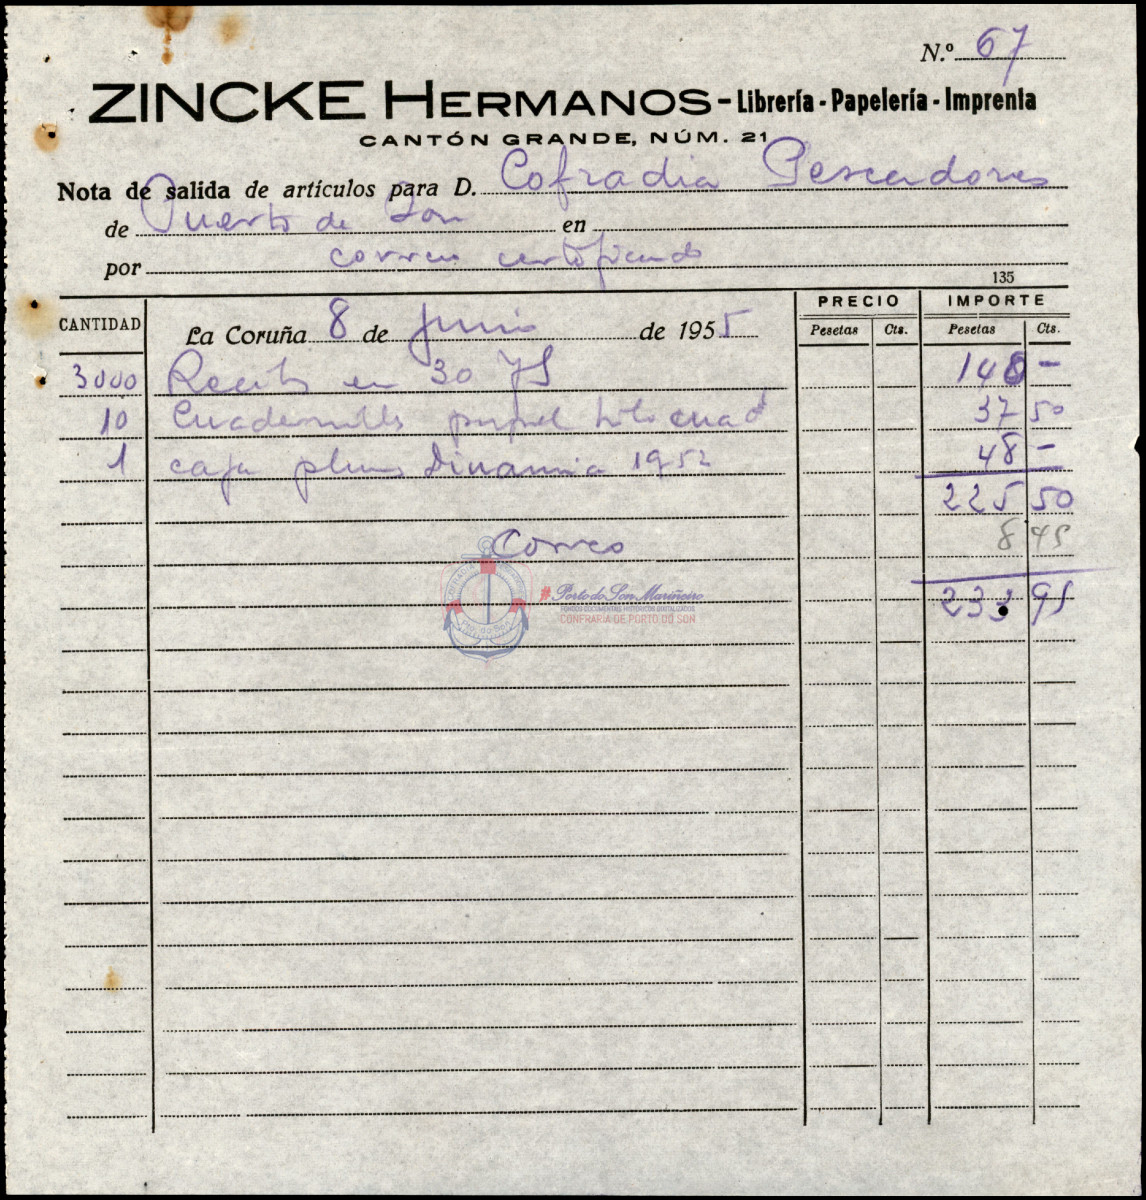 N.º 67
ZINCKE HERMANOS - Librería - Papelería - Imprenta
CANTÓN GRANDE, NÚM. 21
Nota de salida de artículos para D. Cofradia Pescadores
de Puerto de Son en
por correo certificado
135
CANTIDAD La Coruña 8 de Junio de 1955 PRECIO IMPORTE
Pesetas Cts. Pesetas Cts.
3000 Recibos en 30 148 -
10 Cuadernillos papel hilo cuad 37 50
1 caja plumas Dinamia 1952 48 -
225 50
Correo 8 45
233 95
#Porto do Son Mariñeiro
FONDOS DOCUMENTAIS HISTÓRICOS DIXITALIZADOS
CONFRARÍA DE PORTO DO SON